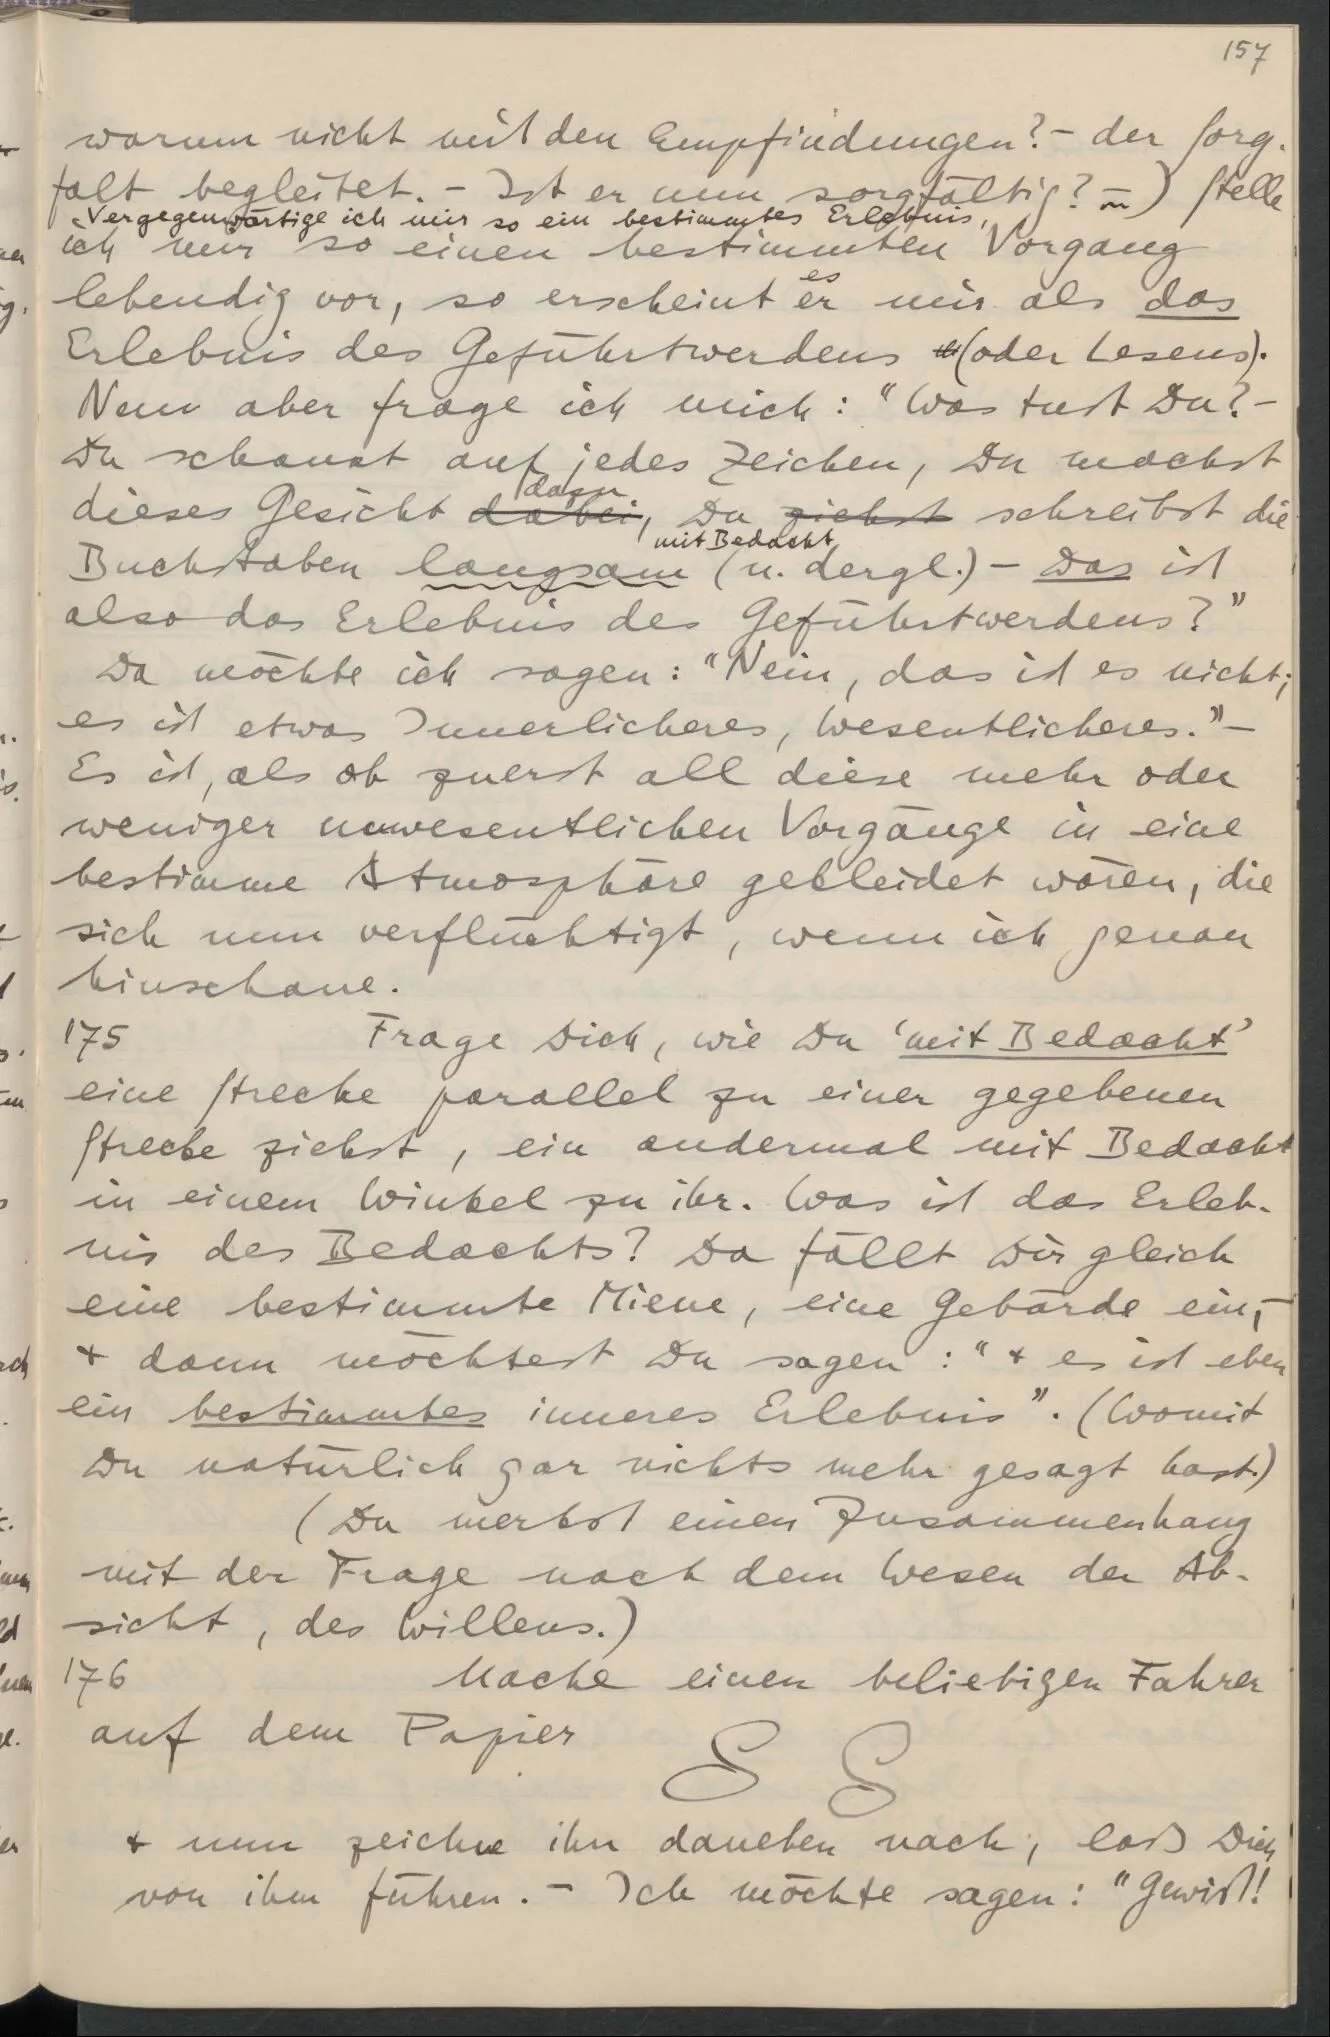 157
warum nicht mit den Empfindungen? – der Sorg-
falt begleitet. – Ist er nun sorgfältig? –) Stelle
Vergegenwärtige ich mir so ein bestimmtes Erlebnis,
ich mir so einen bestimmten Vorgang
es
lebendig vor, so erscheint er mir als das
Erlebnis des Geführtwerdens (oder Lesens).
Nun aber frage ich mich: "Was tust Du? –
Du schaust auf jedes Zeichen, Du machst
dazu
dieses Gesicht dabei, Du ziehst schreibst die
mit Bedacht
Buchstaben langsam (u. dergl.) – Das ist
also das Erlebnis des Geführtwerdens?"
Da möchte ich sagen: "Nein, das ist es nicht;
es ist etwas Innerlicheres, Wesentlicheres." –
Es ist, als ob zuerst all diese mehr oder
weniger unwesentlichen Vorgänge in eine
bestimme Atmosphäre gekleidet wären, die
sich nun verflüchtigt, wenn ich genau
hinschaue.
175 Frage Dich, wie Du 'mit Bedacht'
eine Strecke parallel zu einer gegebenen
Strecke ziehst, ein andermal mit Bedacht
in einem Winkel zu ihr. Was ist das Erleb-
nis des Bedachts? Da fällt Dir gleich
eine bestimmte Miene, eine Gebärde ein, –
+ dann möchtest Du sagen: "+ es ist eben
ein bestimmtes inneres Erlebnis". (Womit
Du natürlich gar nichts mehr gesagt hast.)
(Du merkst einen Zusammenhang
mit der Frage nach dem Wesen der Ab-
sicht, des Willens.)
176 Mache einen beliebigen Fahrer
auf dem Papier
+ nun zeichne ihn daneben nach, laß Dich
von ihm führen. – Ich möchte sagen: "Gewiß!